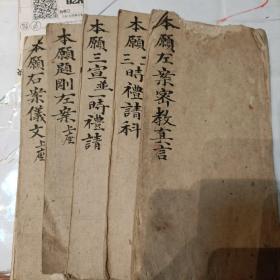 本願左案密教真言
本願三時禮請科
本願三宣並一時禮請
本願題剛左案上座
本願右案儀文上座